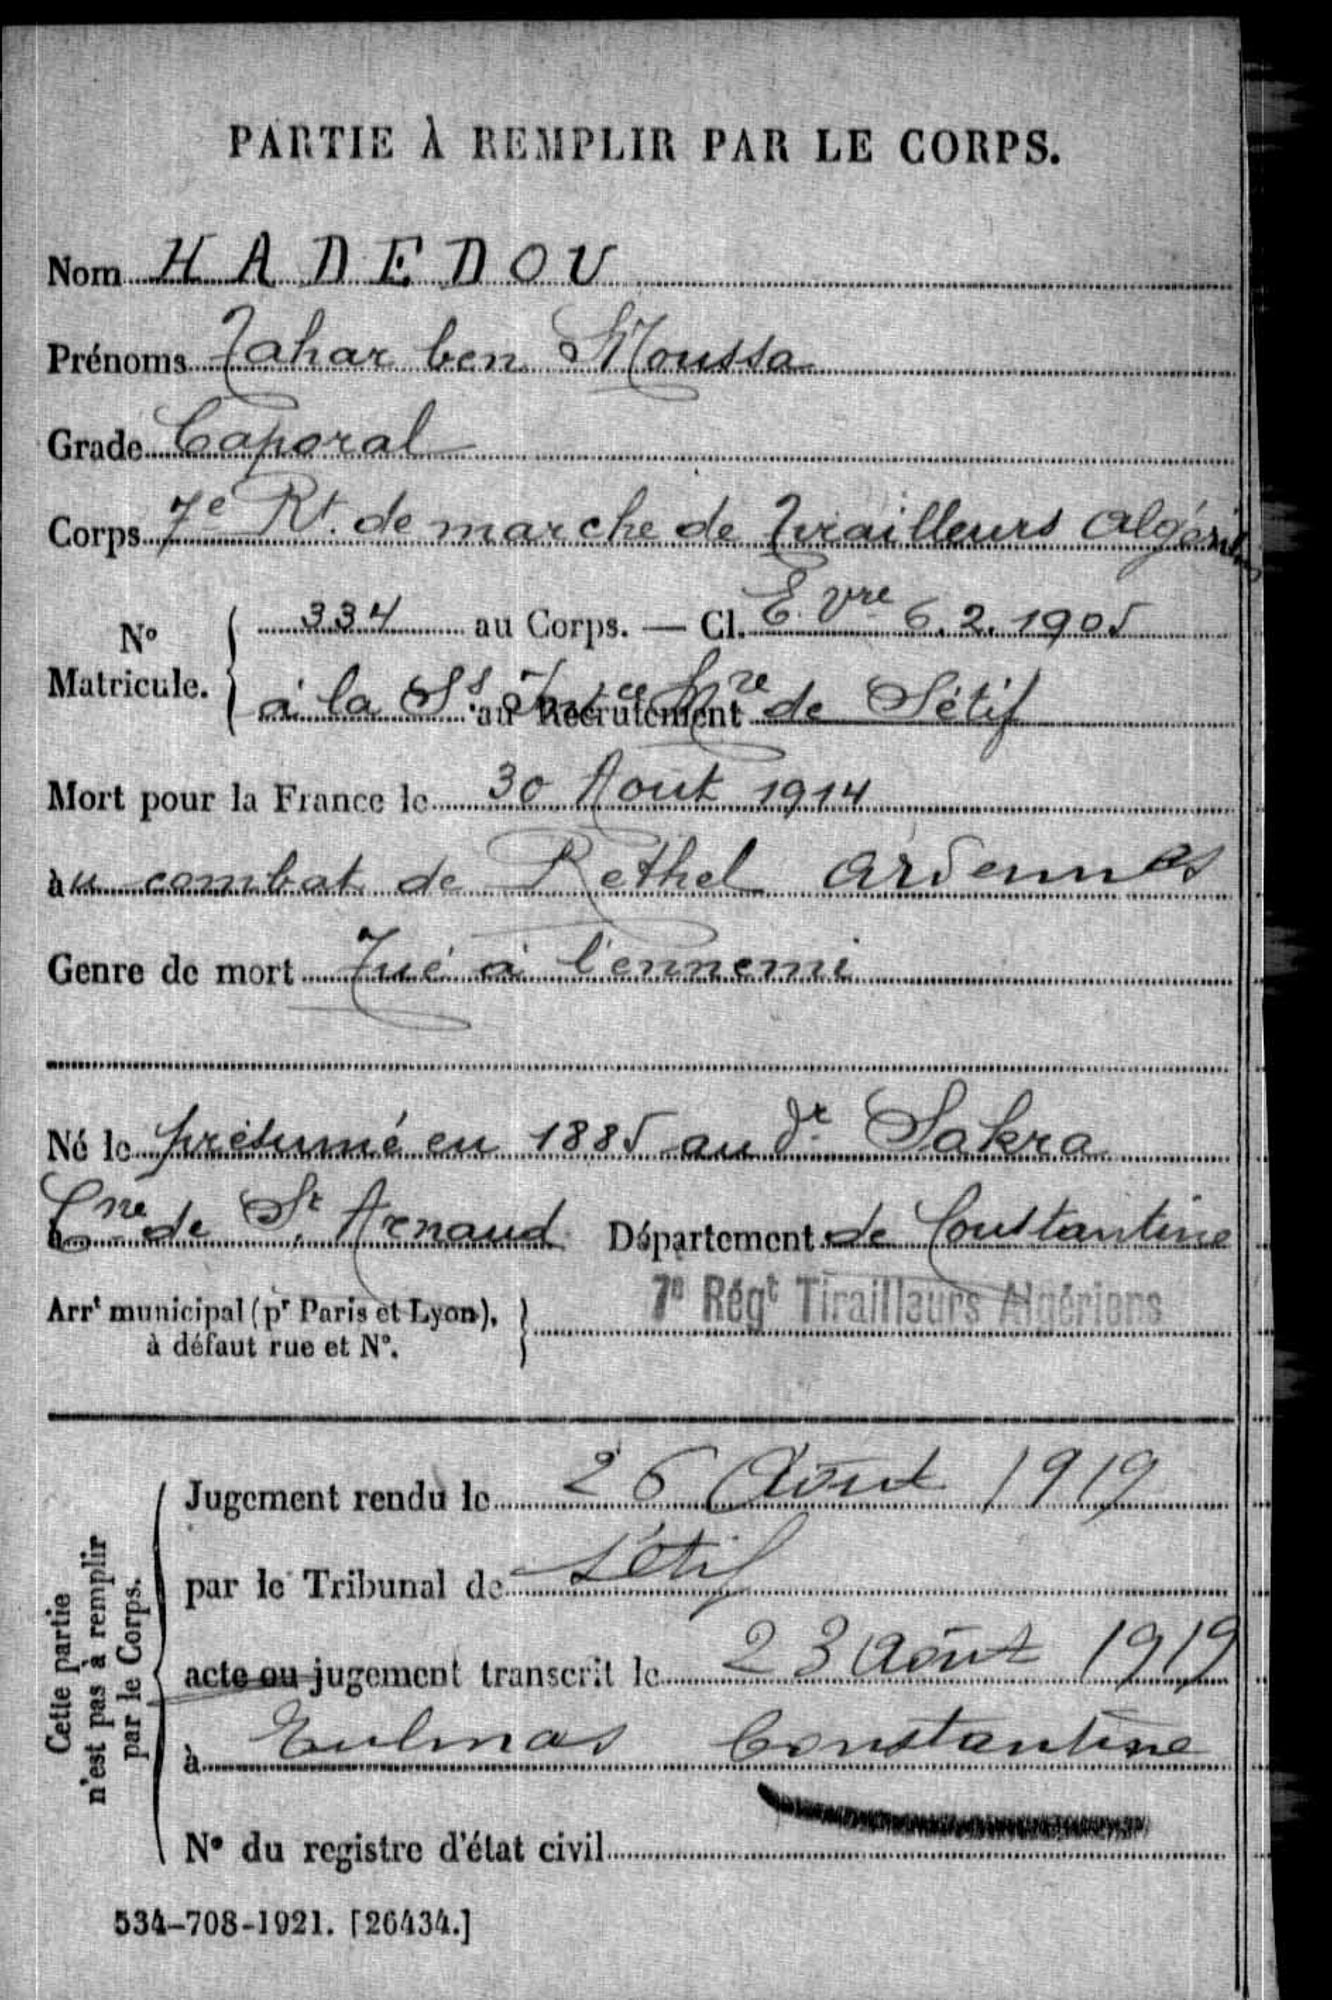 PARTIE À REMPLIR PAR LE CORPS.
Nom HADEDOU
Prénoms Tahar ben Moussa
Grade Caporal
Corps 7e Rt. de marche de Tirailleurs Algériens
N° Matricule. 334 au Corps. — Cl. E. vre 6.2.1905
à la Ss Intce Mre de Sétif au Recrutement
Mort pour la France le 30 Aout 1914
au combat de Rethel Ardennes
Genre de mort Tué à l'ennemi
Né le présumé en 1885 au dr Sakra
à Cne de St Arnaud Département de Constantine
7e Régt Tirailleurs Algériens
Arrt municipal (pr Paris et Lyon),
à défaut rue et N°.
Cette partie
n'est pas à remplir
par le Corps.
Jugement rendu le 26 Août 1919
par le Tribunal de Sétif
acte ou jugement transcrit le 23 août 1919
à Eulmas Constantine
N° du registre d'état civil
534-708-1921. [26434.]